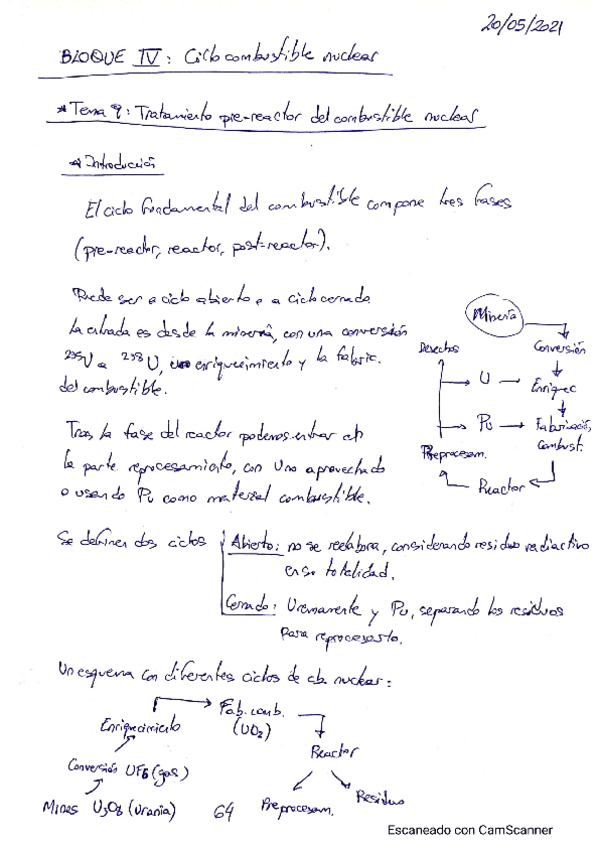 20/05/2021
BLOQUE IV: Ciclo combustible nuclear
* Tema 9: Tratamiento pre-reactor del combustible nuclear
* Introducción
El ciclo fundamental del combustible compone tres fases
(pre-reactor, reactor, post-reactor).
Puede ser a ciclo abierto o a ciclo cerrado
La entrada es desde la minería, con una conversión
235U a 238U, enriquecimiento y la fabric.
del combustible.
Tras la fase del reactor podemos entrar en
la parte reprocesamiento, con U no aprovechado
o usando Pu como material combustible.
Minería
Desechos
Conversión
U
Enriquec
Pu
Fabricación
Combust.
Preprocesam.
Reactor
Se definen dos ciclos
Abierto: no se reelabora, considerando residuo radiactivo
en su totalidad.
Cerrado: U remanente y Pu, separando los residuos
para reprocesarlo.
Un esquema con diferentes ciclos de cb. nuclear:
Enriquecimiento
Fab. comb.
(UO2)
Reactor
Conversión UF6 (gas)
Preprocesam.
Residuo
Minas U3O8 (Urania)
64
Escaneado con CamScanner